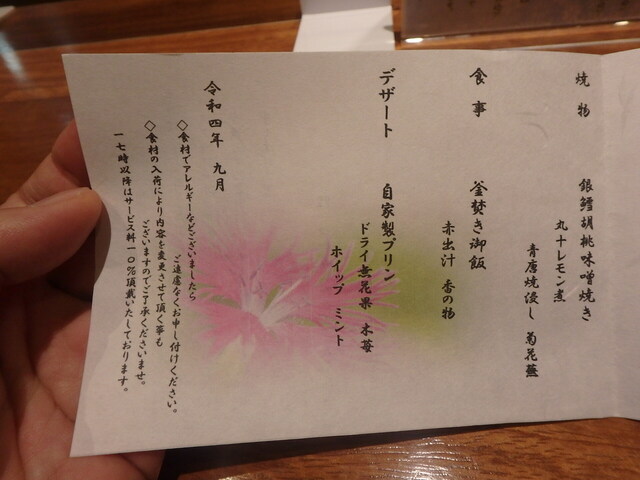 焼物
銀鱈胡桃味噌焼き
丸十レモン煮
青唐焼浸し 菊花蕪
食事
釜焚き御飯
赤出汁 香の物
デザート
自家製プリン
ドライ無花果 木苺
ホイップ ミント
令和四年 九月
◇食材でアレルギーなどございましたら
ご遠慮なくお申し付けください。
◇食材の入荷により内容を変更させて頂く事も
ございますのでご了承くださいませ。
一七時以降はサービス料一〇%頂戴いたしております。